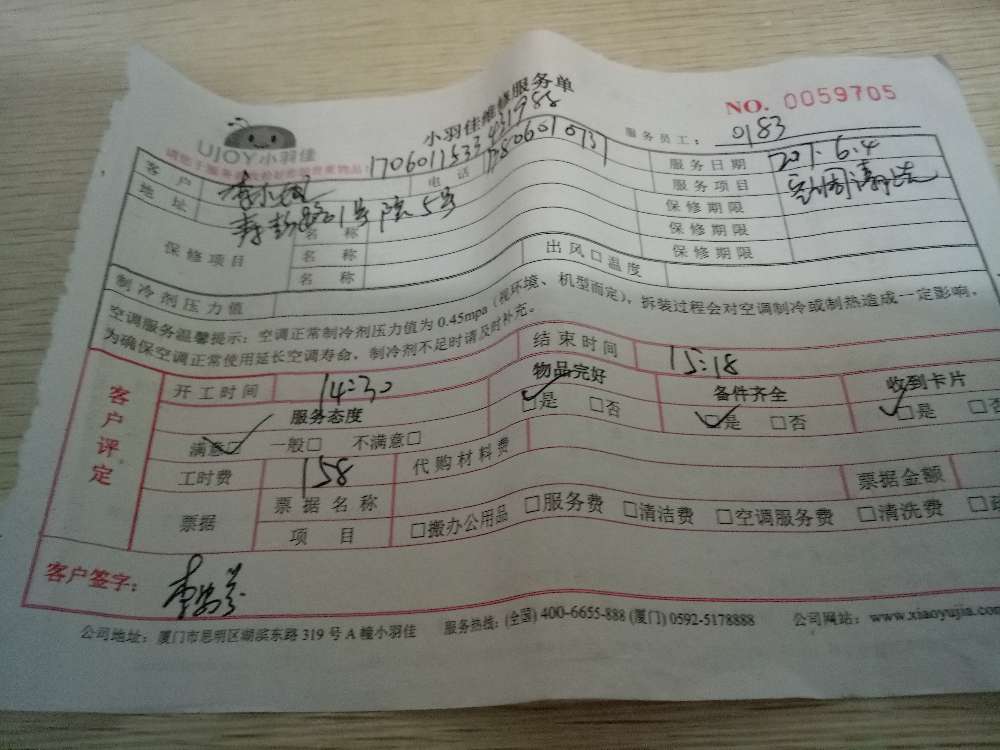 小羽佳维修服务单
NO. 0059705
UJOY小羽佳
服务员工： 0183
客户 电话 服务日期 6.4
地址 服务项目
保修项目 名称 保修期限
名称 保修期限
名称 保修期限
制冷剂压力值 出风口温度
空调服务温馨提示：空调正常制冷剂压力值为0.45mpa（视环境、机型而定），拆装过程会对空调制冷或制热造成一定影响，
为确保空调正常使用延长空调寿命，制冷剂不足时请及时补充。
客户评定
开工时间 14:30 结束时间 15:18
服务态度 物品完好 备件齐全 收到卡片
满意□ 一般□ 不满意□ □是 □否 □是 □否 □是 □否
工时费 158 代购材料费
票据 票据名称 票据金额
项目 □搬办公用品 □服务费 □清洁费 □空调服务费 □清洗费
客户签字：
公司地址：厦门市思明区湖滨东路319号A幢小羽佳 服务热线：(全国) 400-6655-888 (厦门) 0592-5178888 公司网站：www.xiaoyujia.com